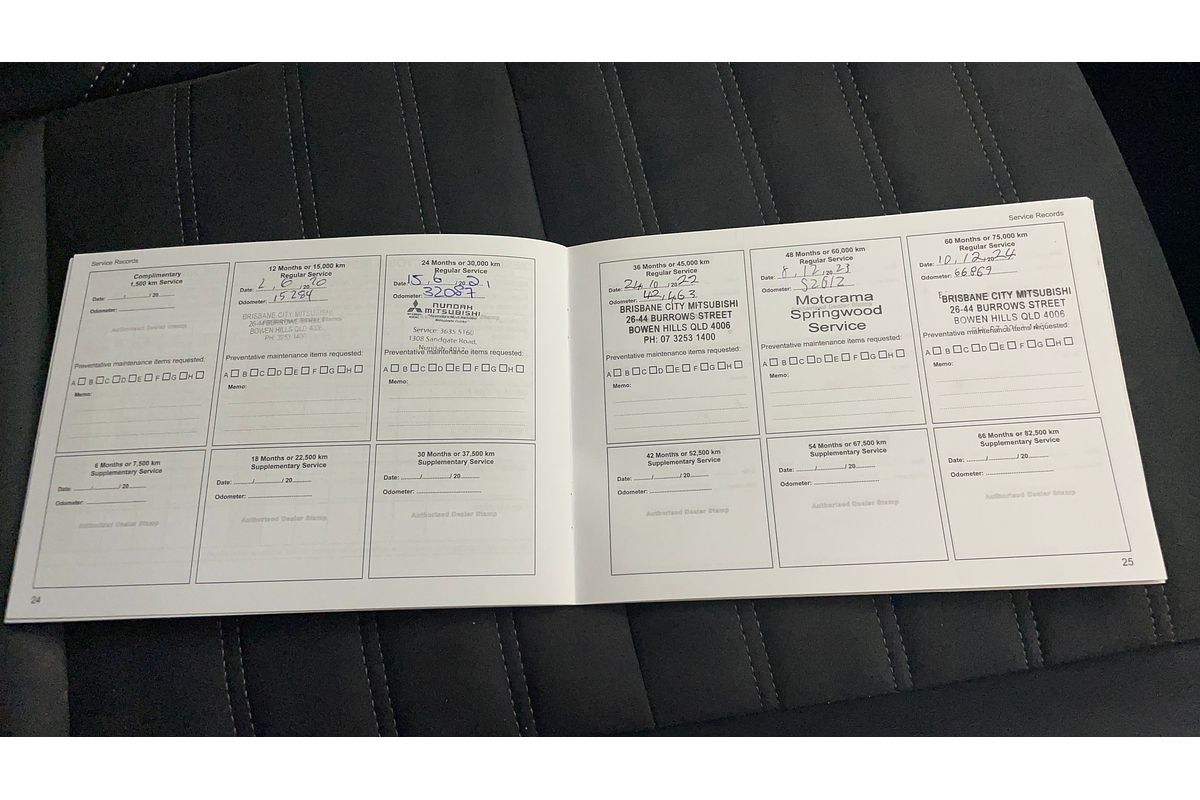 Service Records
Complimentary
1,500 km Service
Date: ......./......./ 20.......
Odometer: ..............................
Authorised Dealer Stamp
Preventative maintenance items requested:
A □ B □ C □ D □ E □ F □ G □ H □
Memo:
12 Months or 15,000 km
Regular Service
Date: 2 / 6 / 20 20
Odometer: 15284
BRISBANE CITY MITSUBISHI
26-44 BURROWS STREET
BOWEN HILLS QLD 4006
PH: 07 3253 1400
Preventative maintenance items requested:
A □ B □ C □ D □ E □ F □ G □ H □
Memo:
24 Months or 30,000 km
Regular Service
Date: 15 / 6 / 20 21
Odometer: 32087
NUNDAH
MITSUBISHI
Service: 3635 5160
1308 Sandgate Road,
Nundah 4012
Preventative maintenance items requested:
A □ B □ C □ D □ E □ F □ G □ H □
Memo:
6 Months or 7,500 km
Supplementary Service
Date: ......./......./ 20.......
Odometer: ..............................
Authorised Dealer Stamp
18 Months or 22,500 km
Supplementary Service
Date: ......./......./ 20.......
Odometer: ..............................
Authorised Dealer Stamp
30 Months or 37,500 km
Supplementary Service
Date: ......./......./ 20.......
Odometer: ..............................
Authorised Dealer Stamp
24
Service Records
36 Months or 45,000 km
Regular Service
Date: 24 / 10 / 20 22
Odometer: 42,463
BRISBANE CITY MITSUBISHI
26-44 BURROWS STREET
BOWEN HILLS QLD 4006
PH: 07 3253 1400
Preventative maintenance items requested:
A □ B □ C □ D □ E □ F □ G □ H □
Memo:
48 Months or 60,000 km
Regular Service
Date: 8 / 12 / 20 23
Odometer: 52012
Motorama
Springwood
Service
Preventative maintenance items requested:
A □ B □ C □ D □ E □ F □ G □ H □
Memo:
60 Months or 75,000 km
Regular Service
Date: 10 / 12 / 20 24
Odometer: 66869
BRISBANE CITY MITSUBISHI
26-44 BURROWS STREET
BOWEN HILLS QLD 4006
Preventative maintenance items requested:
A □ B □ C □ D □ E □ F □ G □ H □
Memo:
42 Months or 52,500 km
Supplementary Service
Date: ......./......./ 20.......
Odometer: ..............................
Authorised Dealer Stamp
54 Months or 67,500 km
Supplementary Service
Date: ......./......./ 20.......
Odometer: ..............................
Authorised Dealer Stamp
66 Months or 82,500 km
Supplementary Service
Date: ......./......./ 20.......
Odometer: ..............................
Authorised Dealer Stamp
25